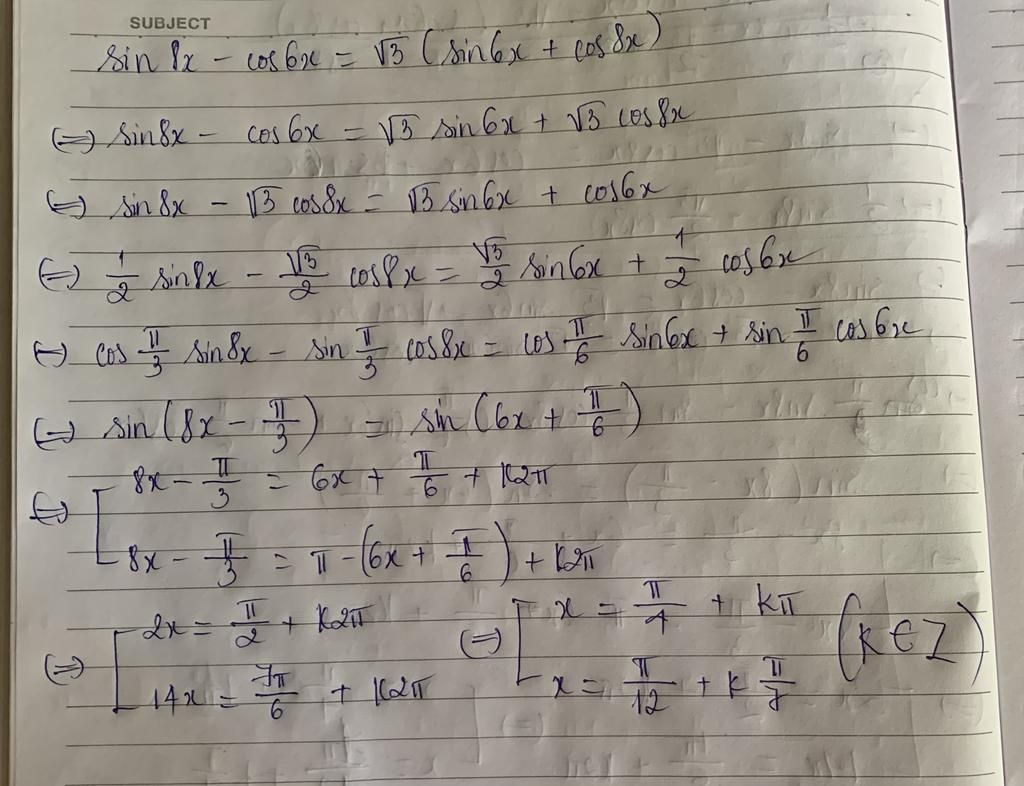 SUBJECT
sin 8x - cos6x = √3 (sin6x + cos8x)
(=) sin8x - cos6x = √3 sin6x + √3 cos8x
(=) sin8x - √3 cos8x = √3 sin6x + cos6x
(=) 1/2 sin8x - √3/2 cos8x = √3/2 sin6x + 1/2 cos6x
(=) cos π/3 sin8x - sin π/3 cos8x = cos π/6 sin6x + sin π/6 cos6x
(=) sin(8x - π/3) = sin(6x + π/6)
(=) [ 8x - π/3 = 6x + π/6 + K2π
8x - π/3 = π - (6x + π/6) + K2π
(=) [ 2x = π/2 + K2π (=) [ x = π/4 + Kπ (K ∈ Z)
14x = 7π/6 + K2π x = π/12 + K π/7